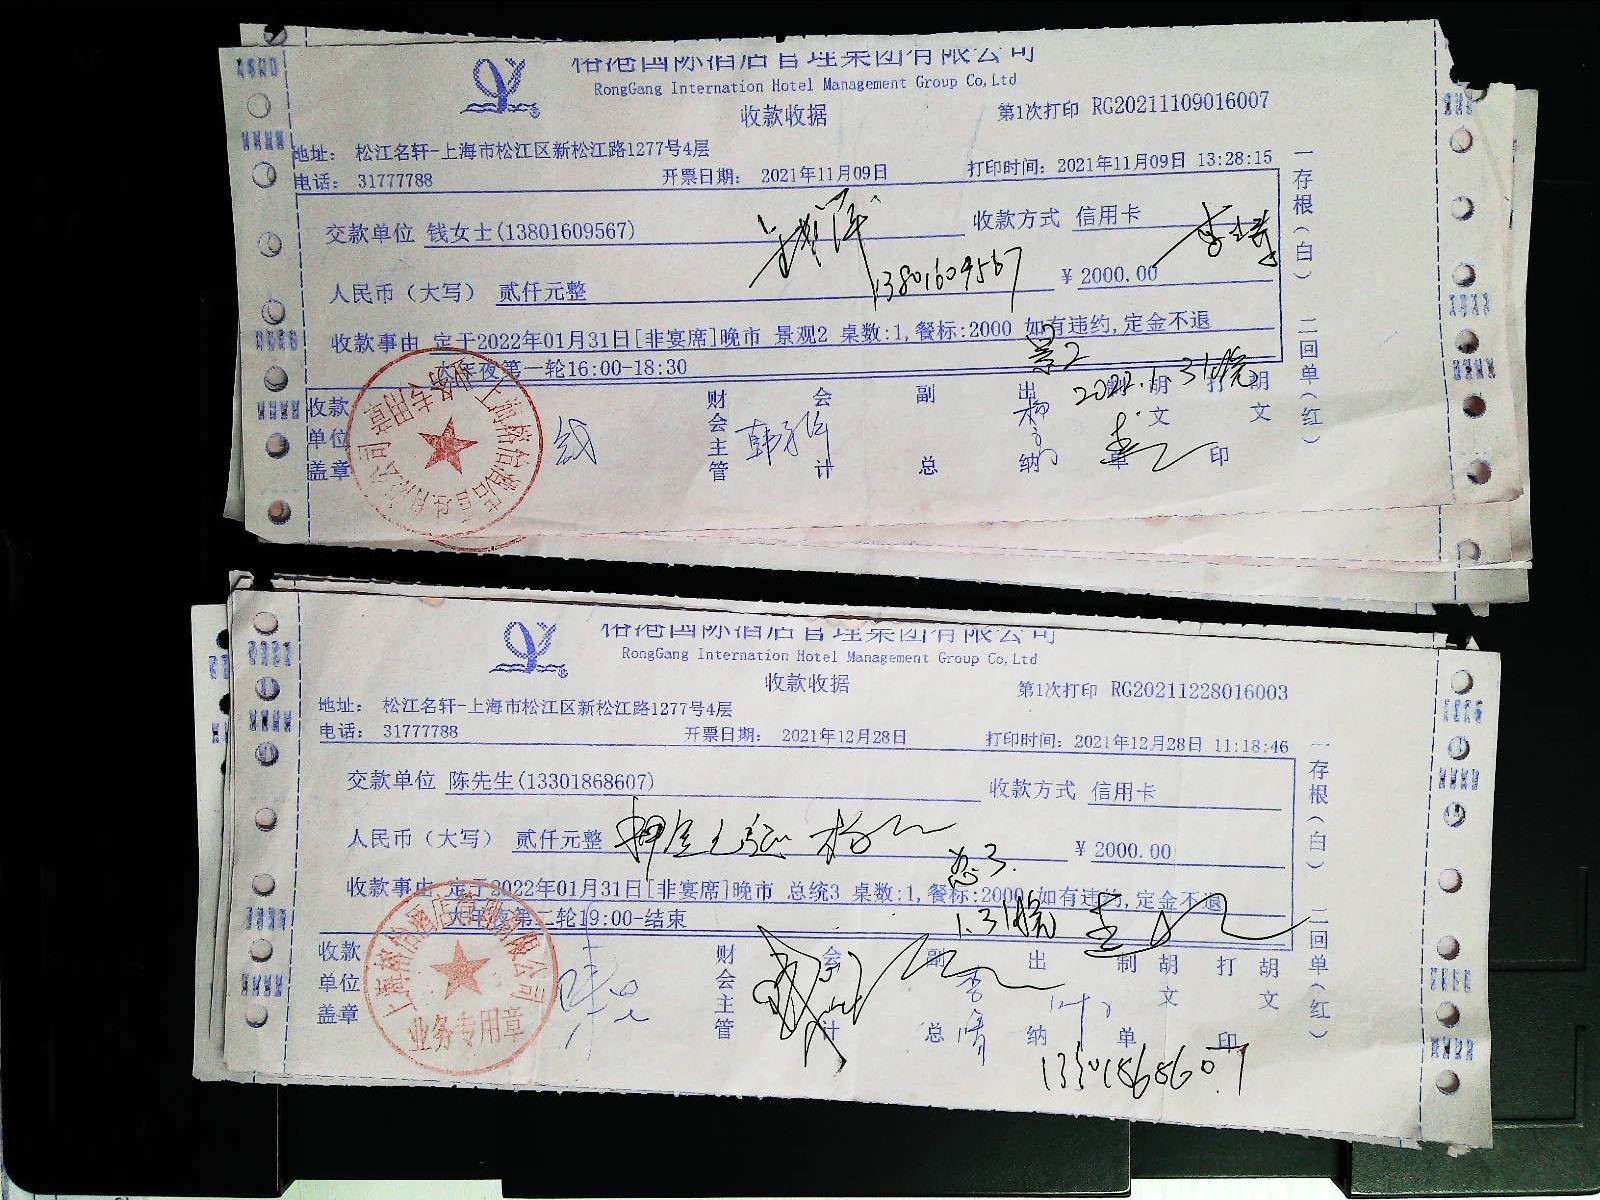 裕港国际酒店管理集团有限公司
RongGang Internation Hotel Management Group Co,Ltd
收款收据
第1次打印 RG20211109016007
地址: 松江名轩-上海市松江区新松江路1277号4层
电话: 31777788 开票日期: 2021年11月09日 打印时间: 2021年11月09日 13:28:15
交款单位 钱女士(13801609567) 收款方式 信用卡
13801609567
人民币（大写） 贰仟元整 ¥ 2000.00
收款事由 定于2022年01月31日[非宴席]晚市 景观2 桌数:1,餐标:2000 如有违约,定金不退
大年夜第一轮16:00-18:30
景2
2022.1.31晚
收款单位盖章 财会主管 会计 副总 出纳 制单 胡文 打印 胡文
钱
一存根(白) 二回单(红)
业务专用章
裕港国际酒店管理集团有限公司
RongGang Internation Hotel Management Group Co,Ltd
收款收据
第1次打印 RG20211228016003
地址: 松江名轩-上海市松江区新松江路1277号4层
电话: 31777788 开票日期: 2021年12月28日 打印时间: 2021年12月28日 11:18:46
交款单位 陈先生(13301868607) 收款方式 信用卡
人民币（大写） 贰仟元整 ¥ 2000.00
总3.
收款事由 定于2022年01月31日[非宴席]晚市 总统3 桌数:1,餐标:2000,如有违约,定金不退
大年夜第二轮19:00-结束
1.31晚
收款单位盖章 财会主管 会计 副总 出纳 制单 胡文 打印 胡文
13301868607
一存根(白) 二回单(红)
上海裕怡酒店管理有限公司
业务专用章